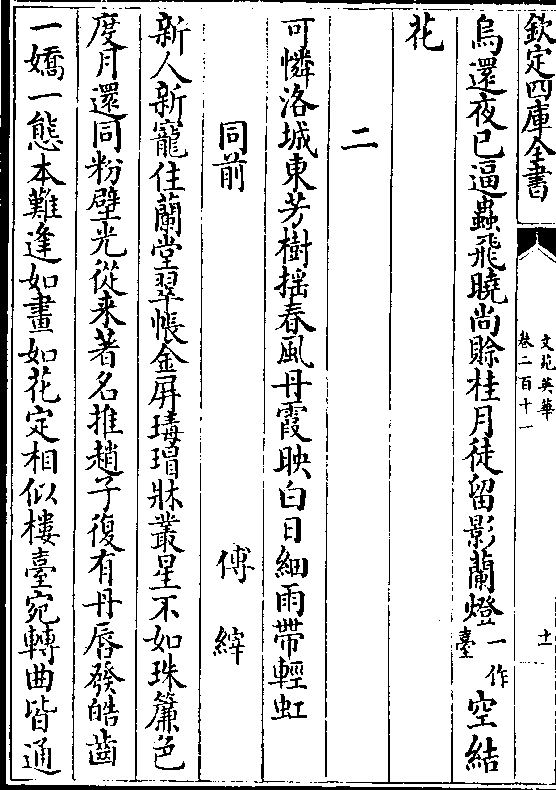 欽定四庫全書
文苑英華
卷二百十一
十一
烏還夜已逼蟲飛曉尚賒桂月徒留影蘭燈一作臺空結
花
二
可憐洛城東芳樹揺春風丹霞映白日細雨帶輕虹
同前 傅縡
新人新寵住蘭堂翠帳金屏瑇瑁牀叢星不如珠簾色
度月還同粉壁光從来著名推趙子復有丹唇發皓齒
一嬌一態本難逢如畫如花定相似樓臺宛轉曲皆通